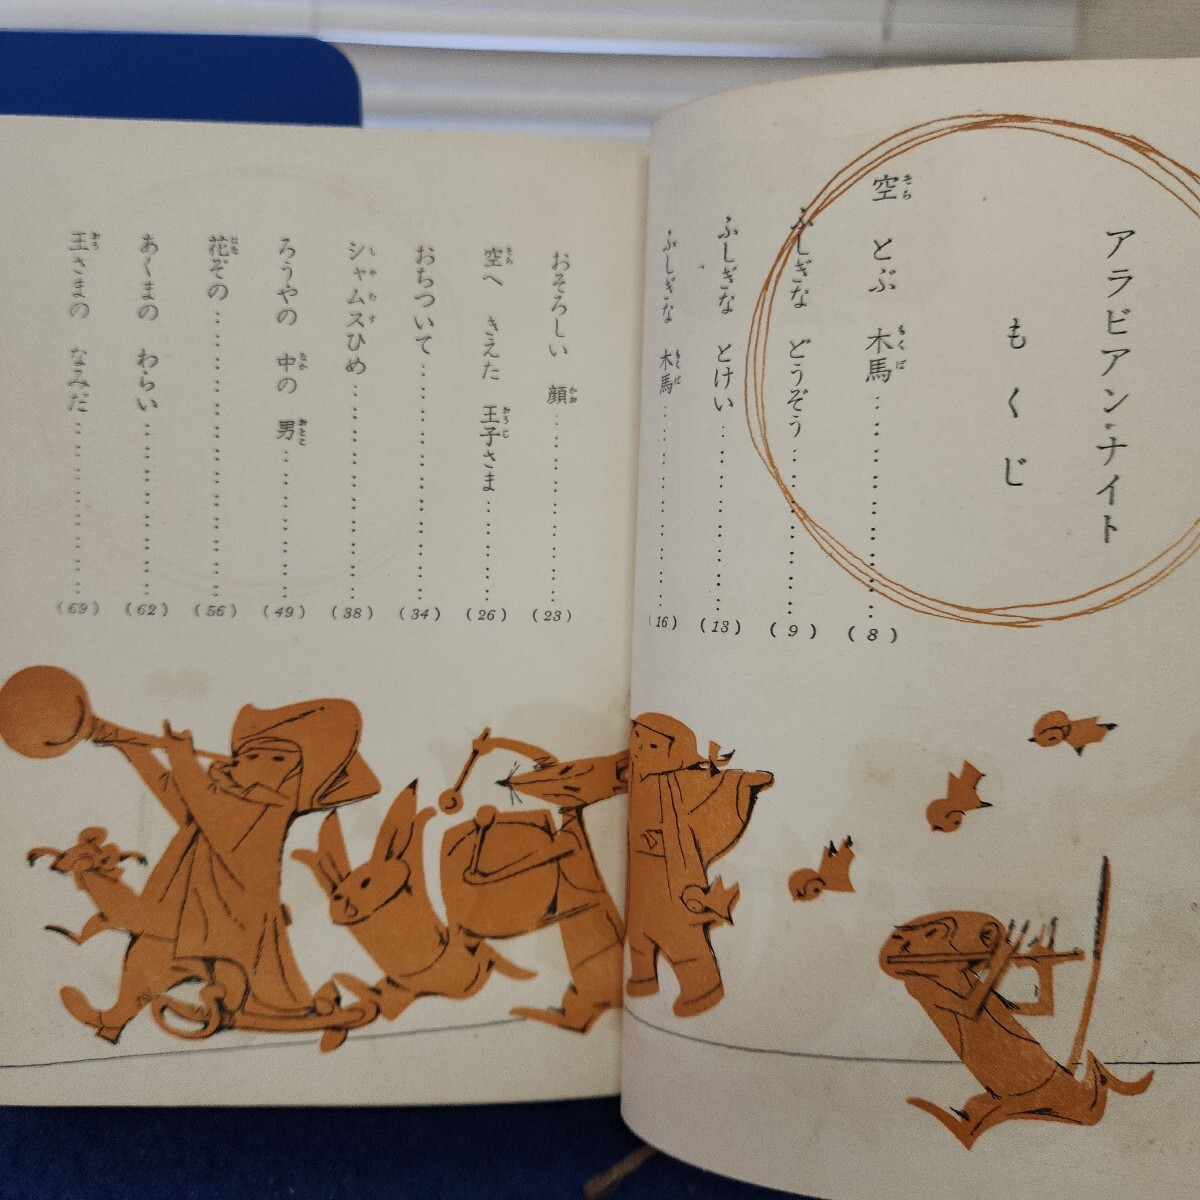 アラビアン・ナイト
もくじ
空とぶ 木馬 (8)
ふしぎな どうぞう (9)
ふしぎな とけい (13)
ふしぎな 木馬 (16)
おそろしい 顔 (23)
空へ きえた 王子さま (26)
おちついて (34)
シャムスひめ (38)
ろうやの 中の 男 (49)
花ぞの (56)
あくまの わらい (62)
王さまの なみだ (69)